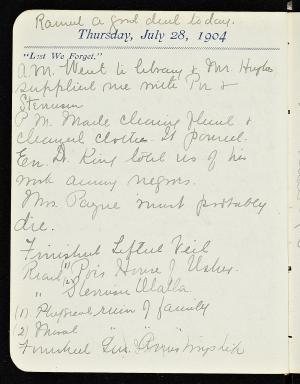 Rained a good deal today.
Thursday, July 28, 1904
"Lest We Forget."
A.M. Went to library & Mr. Hughes
supplied me with Po &
Stevenson
P.M. Made cleaning fluid &
cleaned clothes. It poured.
Ev. D. King told us of his
work among negros.
Mrs Payne must probably
die.
Finished Lifted Veil
Read (1) Po's House of Usher.
" (2) Stevenson Olalla
(1) Physical ruin of family
(2) Moral " " "
Finished Geo.